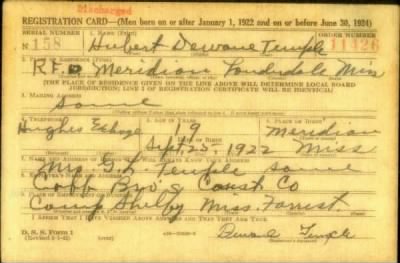 Discharged
REGISTRATION CARD—(Men born on or after January 1, 1922 and on or before June 30, 1924)
SERIAL NUMBER 1. NAME (Print) ORDER NUMBER
158 Hubert Dewane Temple 11426
RFD Meridian Lauderdale Miss
(THE PLACE OF RESIDENCE GIVEN ON THE LINE ABOVE WILL DETERMINE LOCAL BOARD
JURISDICTION; LINE 2 OF REGISTRATION CERTIFICATE WILL BE IDENTICAL)
3. MAILING ADDRESS
Same
4. TELEPHONE 5. AGE IN YEARS 6. PLACE OF BIRTH
Hughes Exhge 19 Meridian
DATE OF BIRTH
Sept. 25, 1922 Miss
7. NAME AND ADDRESS OF PERSON WHO WILL ALWAYS KNOW YOUR ADDRESS
Mrs. G. L. Temple same
8. EMPLOYER'S NAME AND ADDRESS
Cobb Bro's Const. Co
9. PLACE OF EMPLOYMENT OR BUSINESS
Camp Shelby Miss. Forrest.
I AFFIRM THAT I HAVE VERIFIED ABOVE ANSWERS AND THAT THEY ARE TRUE.
D. S. S. Form 1
Dewane Temple
(Registrant's signature)